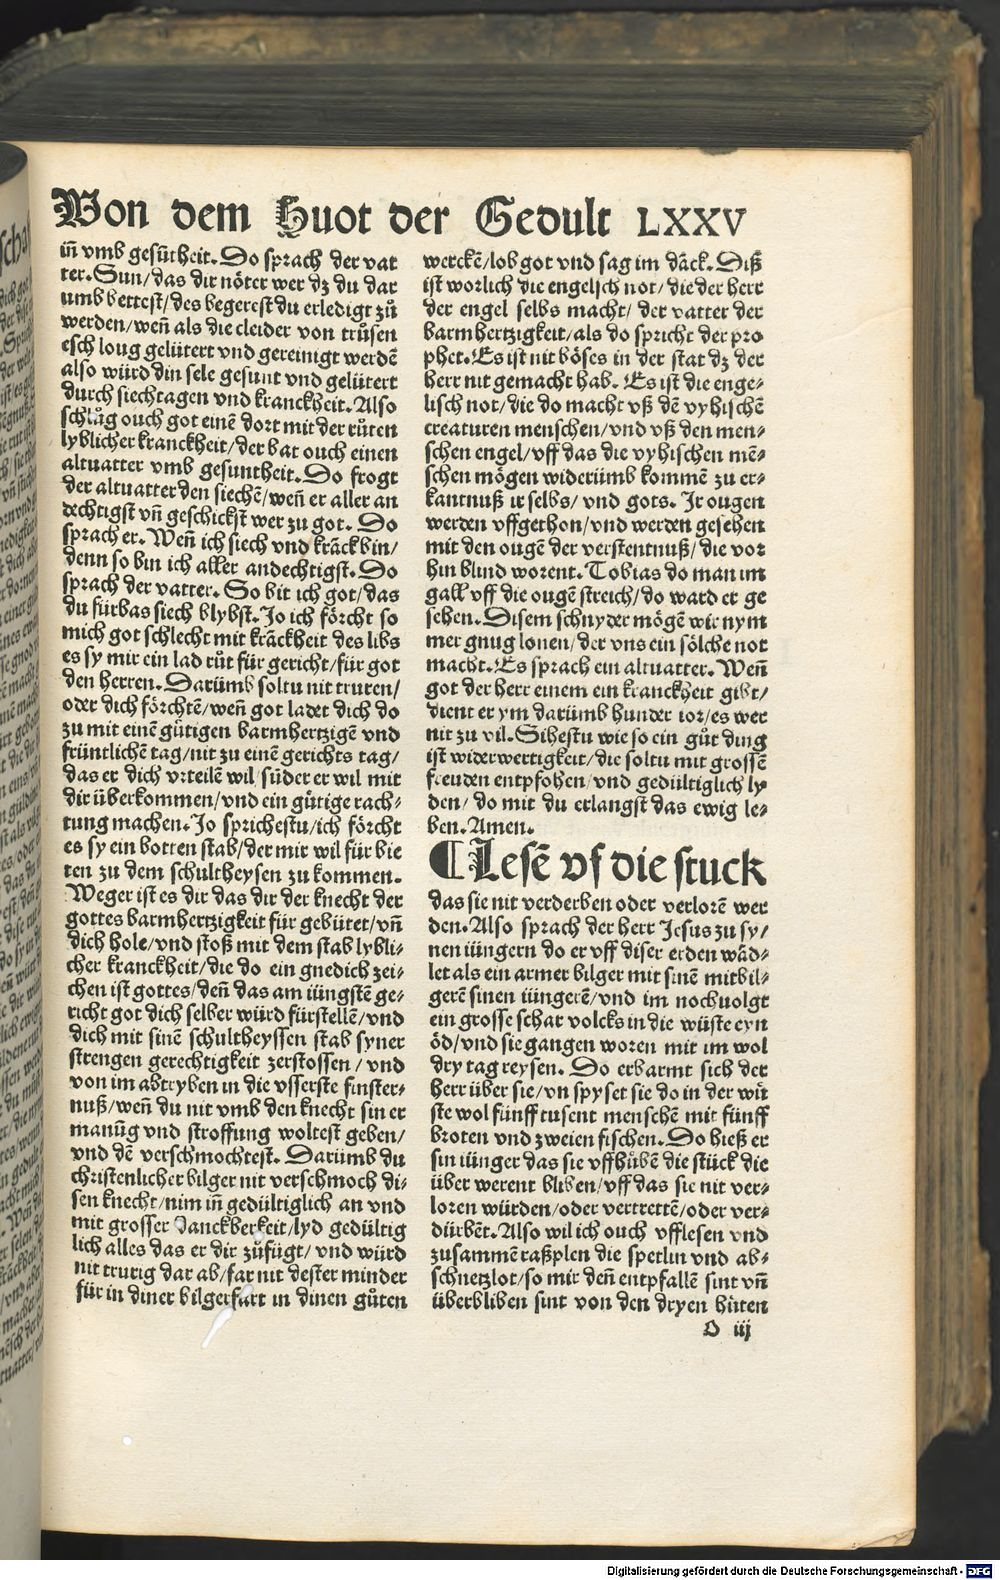 Von dem Huot der Gedult LXXV
in̄ vmb gesūtheit. Do sprach der vat
ter. Sun/das dir nöter wer dz du dar
umb bettest/des begerest du erledigt zů
werden/wen̄ als die cleider von trůsen
esch loug gelütert vnd gereinigt werdē
also würd din sele gesunt vnd gelütert
durch siechtagen vnd kranckheit. Also
schlůg ouch got einē dort mit der růten
lyblicher kranckheit/der bat ouch einen
altuatter vmb gesuntheit. Do frogt
der altuatter den siechē/wen̄ er aller an
dechtigst vn̄ geschickst wer zu got. Do
sprach er. Wen̄ ich siech vnd krāck bin/
denn so bin ich aller andechtigst. Do
sprach der vatter. So bit ich got/das
du fürbas siech blybst. Jo ich förcht so
mich got schlecht mit krāckheit des libs
es sy mir ein lad růt für gericht/für got
den herren. Darümb soltu nit truren/
oder dich förchtē/wen̄ got ladet dich do
zu mit einē gütigen barmhertzigē vnd
früntlichē tag/nit zu einē gerichts tag/
das er dich vrteilē wil/sūder er wil mit
dir überkommen/vnd ein gütige rach⸗
tung machen. Jo sprichestu/ich förcht
es sy ein botten stab/der mir wil für bie
ten zu dem schultheysen zu kommen.
Weger ist es dir das dir der knecht der
gottes barmhertzigkeit für gebütet/vn̄
dich hole/vnd stoß mit dem stab lybli⸗
cher kranckheit/die do ein gnedich zei⸗
chen ist gottes/den̄ das am iüngstē ge⸗
richt got dich selber würd fürstellē/vnd
dich mit sinē schultheyssen stab syner
strengen gerechtigkeit zerstossen/vnd
von im abtryben in die vsserste finster⸗
nuß/wen̄ du nit vmb den knecht sin er
manūg vnd stroffung woltest geben/
vnd dē verschmochtest. Darümb du
christenlicher bilger nit verschmoch di⸗
sen knecht/nim in̄ gedültiglich an vnd
mit grosser danckberkeit/lyd gedültig
lich alles das er dir zůfügt/vnd würd
nit trurig dar ab/far nit dester minder
für in diner bilgerfart in dinen gůten
werckē/lob got vnd sag im dāck. Diß
ist worlich die engelsch not/die der herr
der engel selbs macht/der vatter der
barmhertzigkeit/als do spricht der pro
phet. Es ist nit böses in der stat dz der
herr nit gemacht hab. Es ist die enge⸗
lisch not/die do macht vß dē vyhischē
creaturen menschen/vnd vß den men⸗
schen engel/vff das die vyhischen mē⸗
schen mögen widerümb kommē zu er⸗
kantnuß ir selbs/vnd gots. Ir ougen
werden vffgethon/vnd werden gesehen
mit den ougē der verstentnuß/die vor
hin blind worent. Tobias do man im
gall vff die ougē streich/do ward er ge
sehen. Disem schnyder mögē wir nym
mer gnug lonen/der vns ein sölche not
macht. Es sprach ein altuatter. Wen̄
got der herr einem ein kranckheit gibt/
dient er ym darümb hunder ior/es wer
nit zu vil. Sihestu wie so ein gůt ding
ist widerwertigkeit/die soltu mit grossē
freuden entpfohen/vnd gedültiglich ly
den/do mit du erlangst das ewig le⸗
ben. Amen.
¶Lesē vf die stuck
das sie nit verderben oder verlorē wer
den. Also sprach der herr Jesus zu sy/
nen iüngern do er vff diser erden wād⸗
let als ein armer bilger mit sinē mitbil⸗
gerē sinen iüngerē/vnd im nochuolgt
ein grosse schar volcks in die wüste eyn
öd/vnd sie gangen woren mit im wol
dry tag reysen. Do erbarmt sich der
herr über sie/vn spyset sie do in der wü
ste wol fünff tusent menschē mit fünff
broten vnd zweien fischen. Do hieß er
sin iünger das sie vffhůbē die stück die
über werent bliben/vff das sie nit ver⸗
loren würden/oder vertrettē/oder ver⸗
dürbēt. Also wil ich ouch vfflesen vnd
zusammē raßplen die spetlin vnd ab⸗
schnetzlot/so mir den̄ entpfallē sint vn̄
überbliben sint von den dryen hüten
O iij
Digitalisierung gefördert durch die Deutsche Forschungsgemeinschaft - DFG